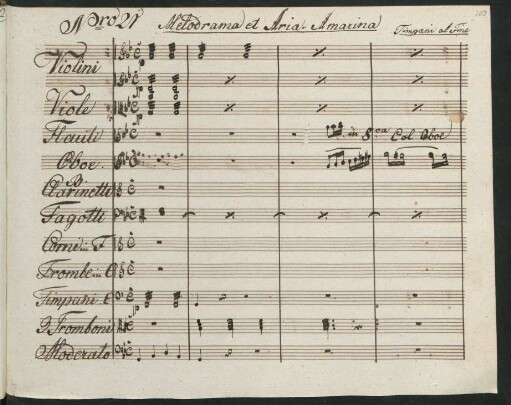 Nro 21 Melodrama et Aria Amarina Timpani al Fine
Violini
Viole
Flauti in 8va Col Oboe
Oboe
Clarinetti B
Fagotti
Corni in F
Trombe in C
Timpani C
3 Tromboni
Moderato